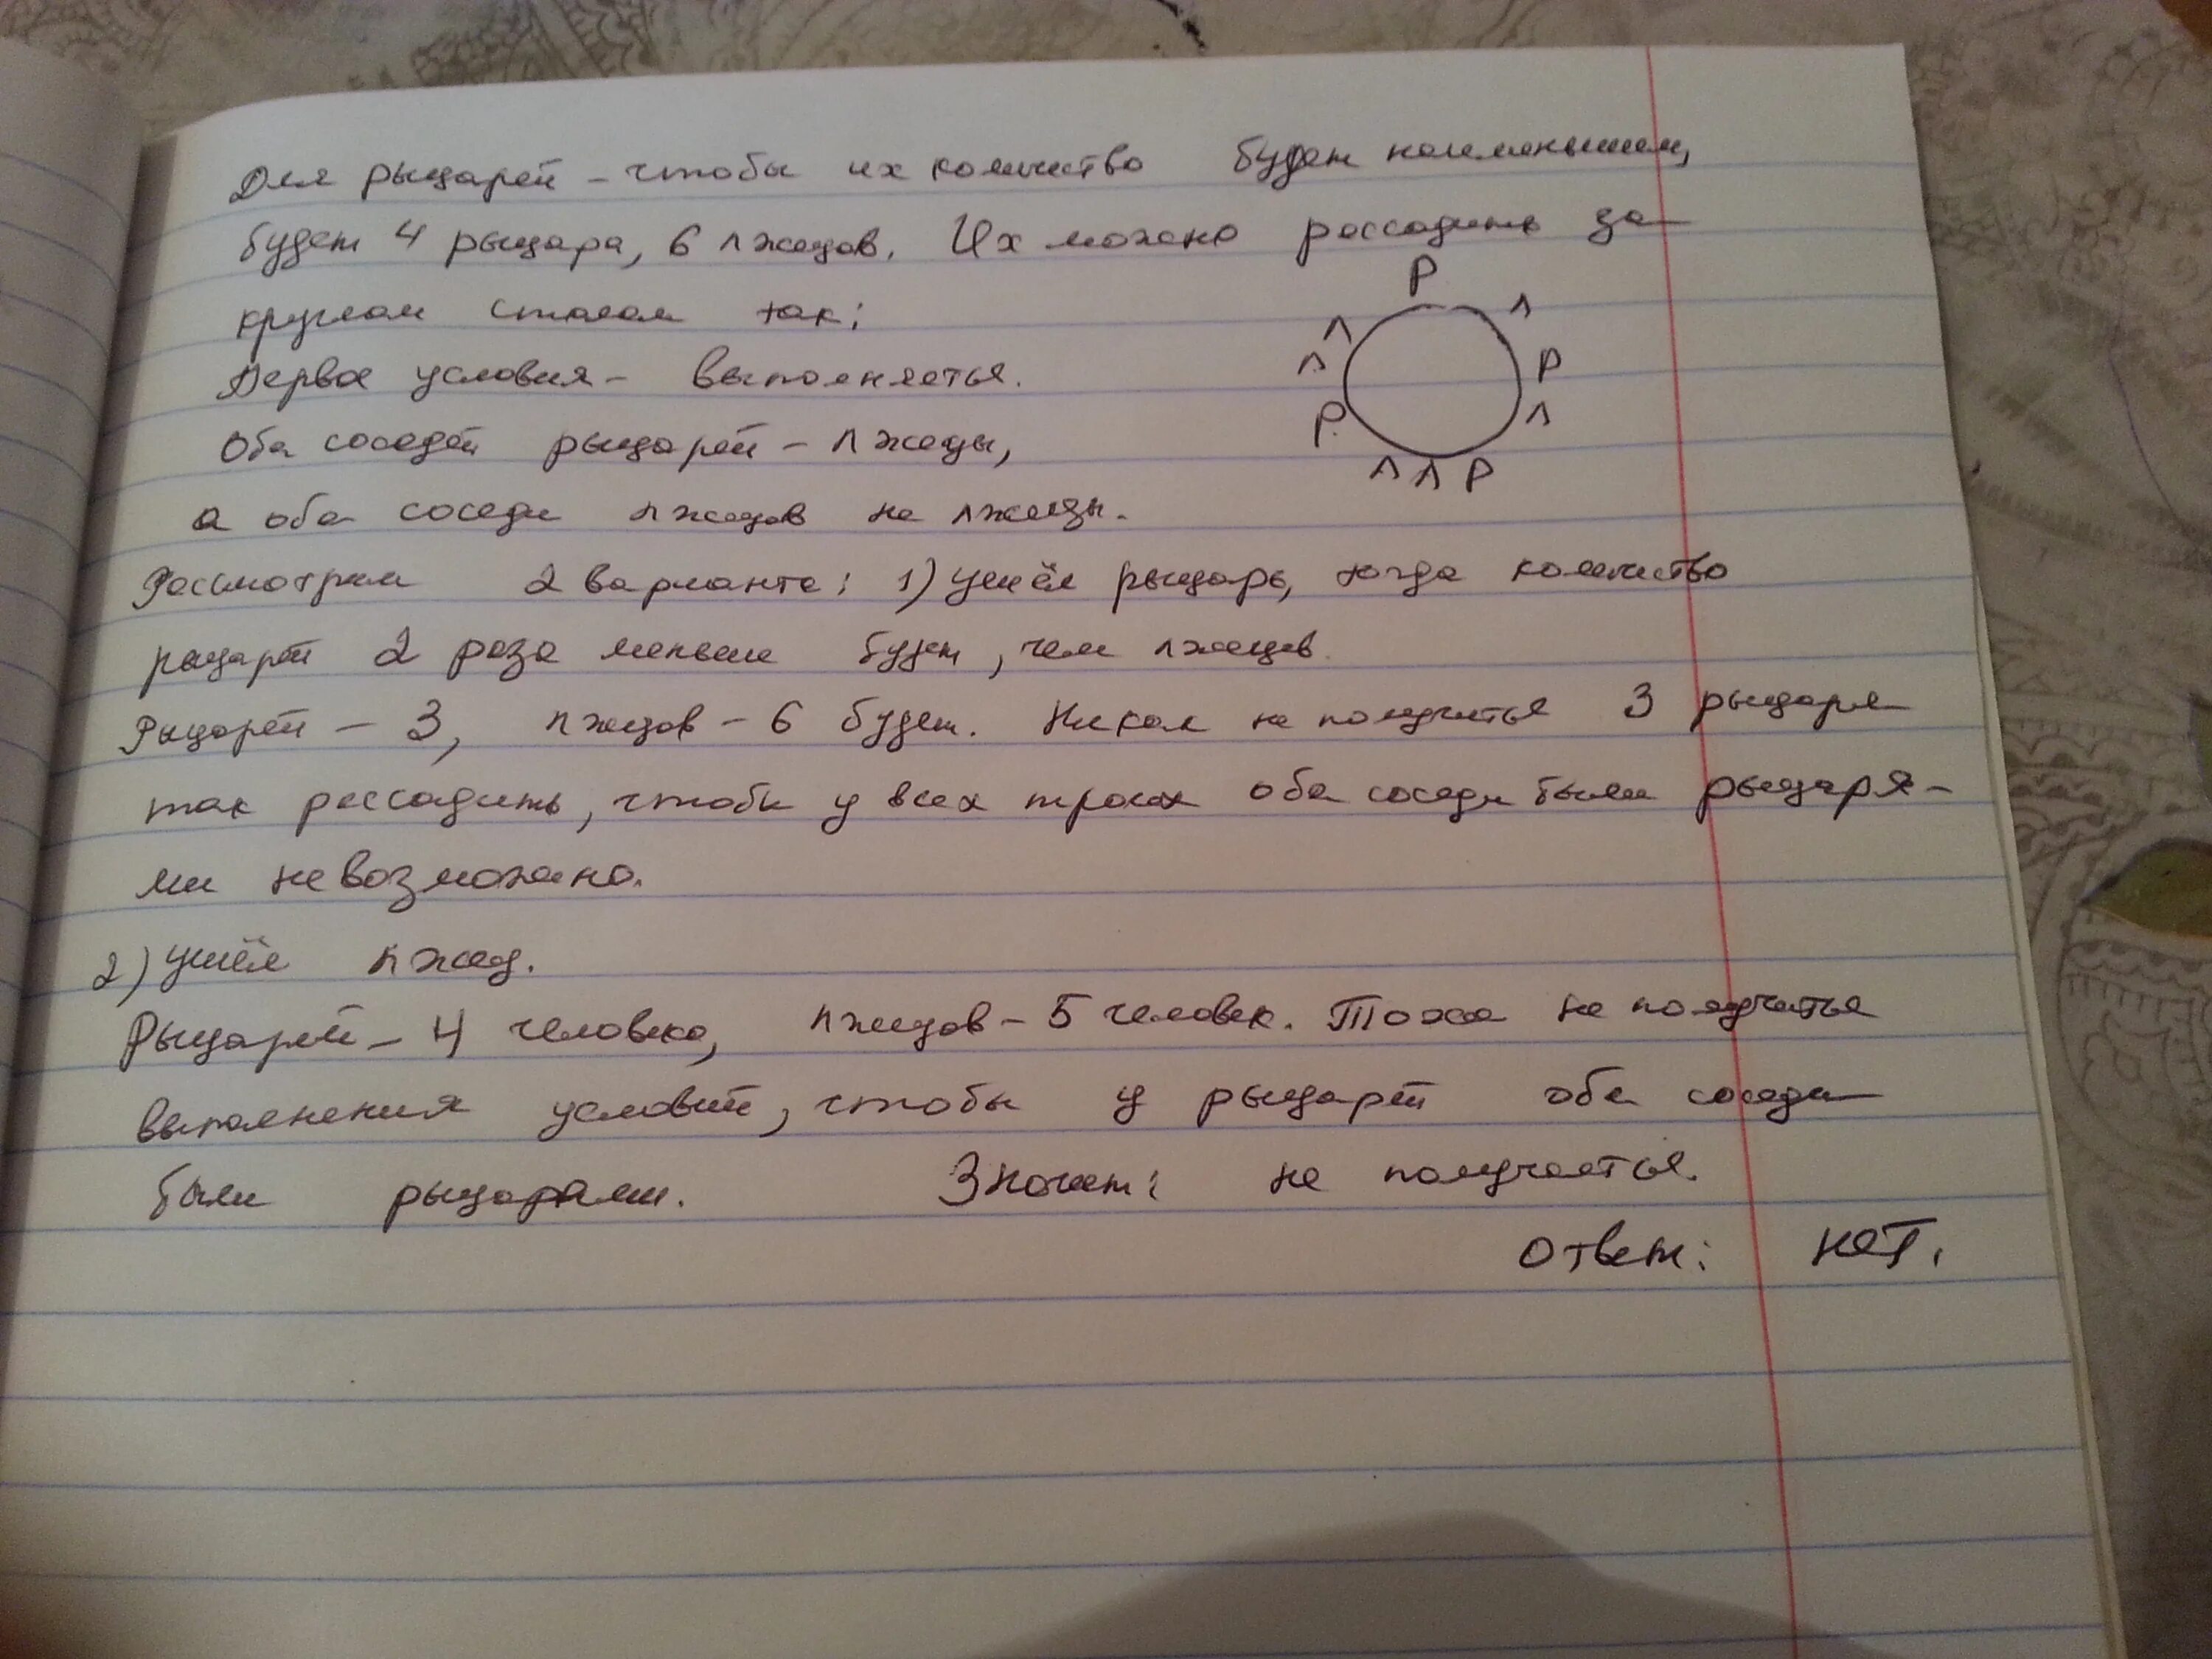 Для рыцарей - чтобы их количество будет наименьшем,
будет 4 рыцара, 6 лжецов. Их можно рассадить за
круглом столом так:
Первое условия - выполняеться.
Оба соседей рыцарей - лжецы,
а оба соседи лжецов не лжецы.
Р
Л
Л
Л
Р
Р
Л
Л Л Р
Рассмотрим 2 варианта: 1) ушёл рыцарь, тогда количество
рыцарей 2 раза меньше будет, чем лжецов.
Рыцарей - 3, лжецов - 6 будет. Никак не получиться 3 рыцаря
так рассадить, чтобы у всех троих оба соседи были рыцаря-
ми невозможно.
2) ушёл лжец.
Рыцарей - 4 человека, лжецов - 5 человек. Тоже не получиться
выполнения условий, чтобы у рыцарей оба соседи
были рыцарями. Значит: не получаеться.
Ответ: нет.